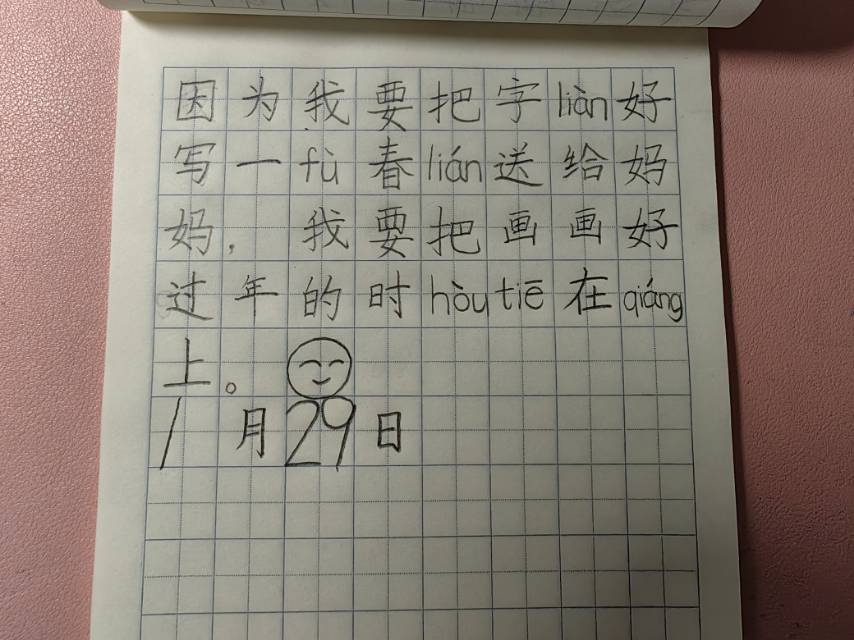 因为我要把字liàn好
写一fù春lián送给妈
妈，我要把画画好
过年的时hòutiē在qiáng
上。
1月29日